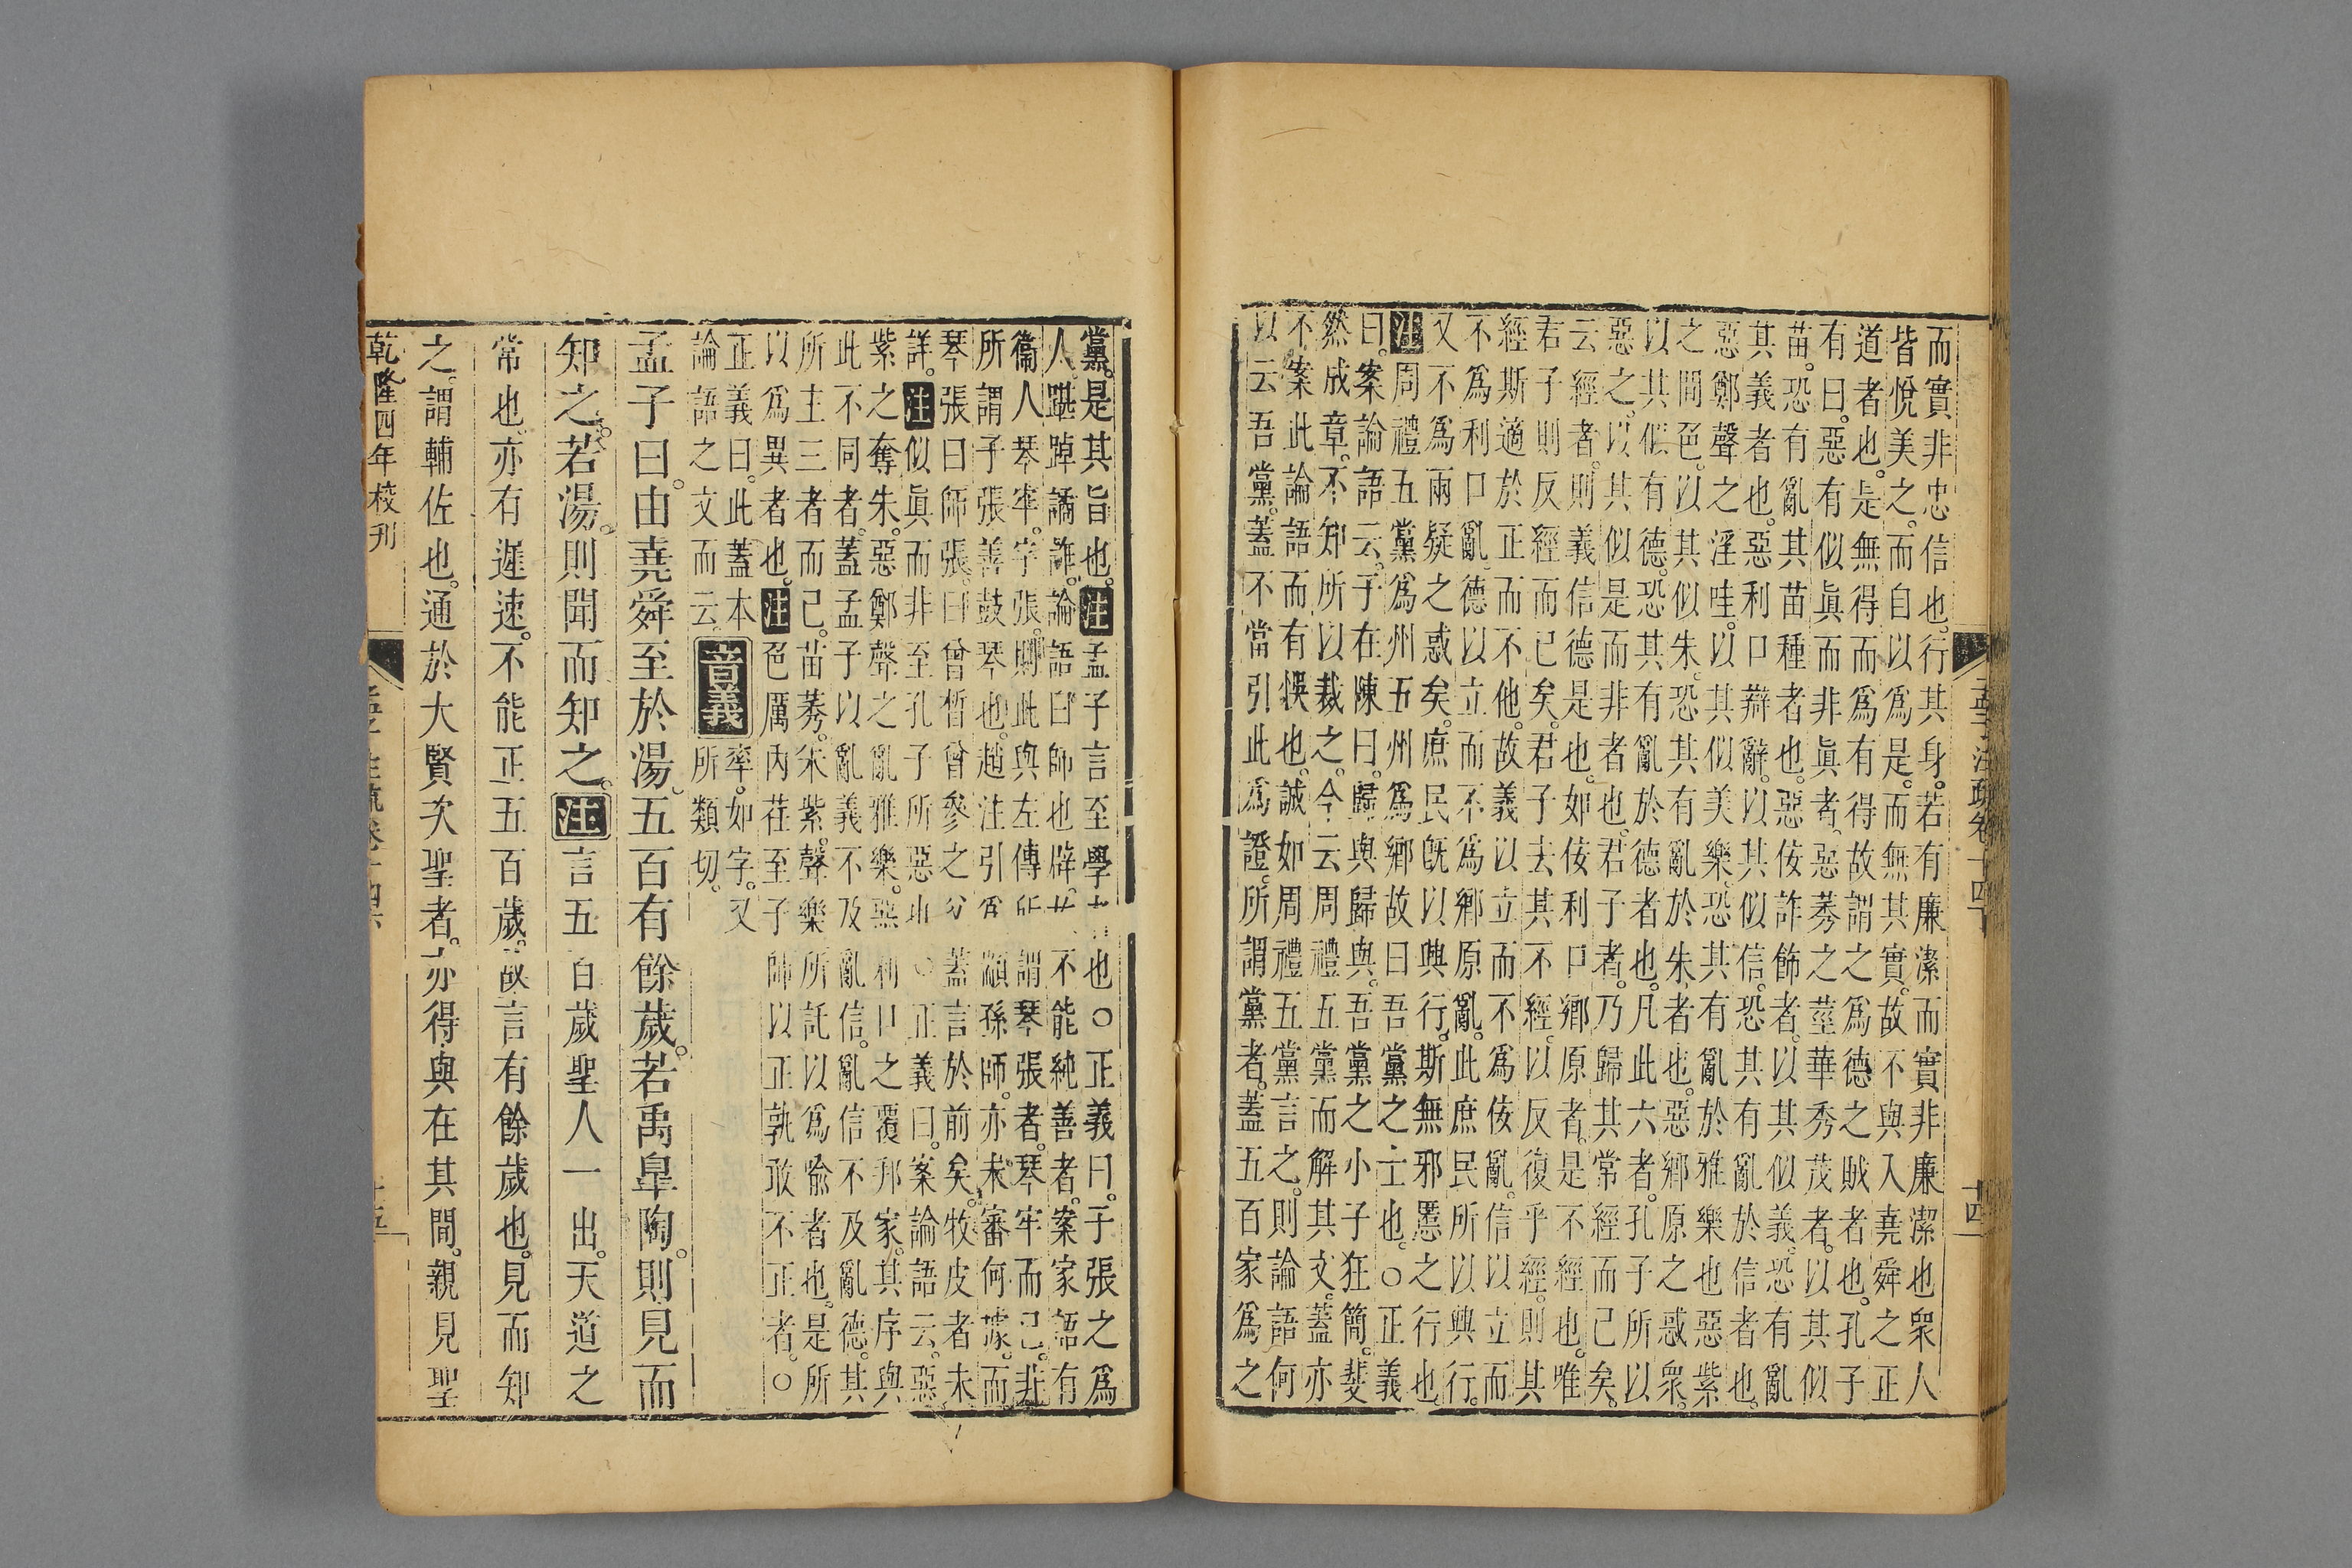 而實非忠信也。行其身。若有廉潔而實非廉潔也衆人
皆悅美之。而自以爲是。而無其實。故不與入堯舜之正
道者也。是無得而爲有得。故謂之爲德之賊者也。孔子
有曰。惡有似眞而非眞者。惡莠之莖華秀茂者。以其似
苗。恐有亂其苗種者也。惡佞詐飾者。以其似義。恐有亂
其義者也。惡利口辯辭。以其似信。恐其有亂於信者也。
惡鄭聲之淫哇。以其似美樂。恐其有亂於雅樂也惡紫
之間色。以其似朱。恐其有亂於朱者也。惡鄉原之惑衆。
以其似有德。恐其有亂於德者也。凡此六者。孔子所以
惡之。以其似是而非者也。君子者。乃歸其常經而已矣。
云經者。則義信德是也。如佞利口鄉原者。是不經也。唯
君子則反經而已矣。君子去其不經以反復乎經。則其
經斯適於正而不他。故義以立而不爲佞亂。信以立而
不爲利口亂。德以立而不爲鄉原亂。此庶民所以興行。
又不爲兩疑之惑矣。庶民旣以興行。斯無邪慝之行也。
注周禮五黨爲州五州爲鄉故曰吾黨之士也。○正義
曰。案論語云。子在陳曰。歸與歸與。吾黨之小子狂簡。斐
然成章。不知所以裁之。今云周禮五黨而解其文。蓋亦
不案此論語而有悞也。誠如周禮五黨言之。則論語何
以云吾黨。蓋不當引此爲證。所謂黨者。蓋五百家爲之
孟子注疏卷十四下
十四
黨。是其旨也。注孟子言至學者也○正義曰。子張之爲
人踸踔譎詐。論語曰師也辟。故不能純善者。案家語有
衞人琴牢。字張。則此與左傳所謂琴張者。琴牢而已。非
所謂子張善鼓琴也。趙注引爲顓孫師。亦未審何據。而
琴張曰師張。曰曾皙曾參之父蓋言於前矣。牧皮者未
詳。注似眞而非至孔子所惡也○正義曰。案論語云。惡
紫之奪朱。惡鄭聲之亂雅樂。惡利口之覆邦家。其序與
此不同者。蓋孟子以亂義不及亂信。亂信不及亂德。其
所主三者而已。苗莠。朱紫。聲樂所託以爲喩者也。是所
以爲異者也。注色厲內荏至子帥以正孰敢不正者。○
正義曰。此蓋本
論語之文而云。音義率。如字。又
所類切。
孟子曰。由堯舜至於湯。五百有餘歲。若禹臯陶。則見而
知之。若湯。則聞而知之。注言五百歲聖人一出。天道之
常也。亦有遲速。不能正五百歲。故言有餘歲也。見而知
之。謂輔佐也。通於大賢次聖者。亦得與在其間。親見聖
乾隆四年校刊
孟子注疏卷十四下
十五